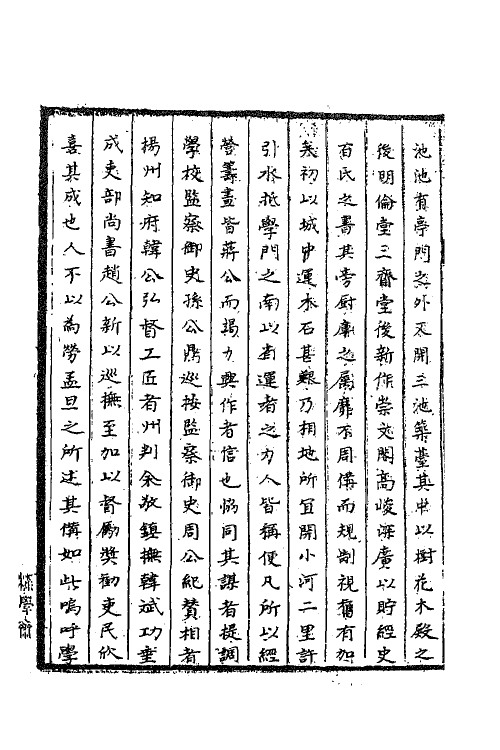 池池有亭門之外又開三池築臺其中以樹花木殿之
後明倫堂三齋堂後新作崇文閣高峻深廣以貯經史
百氏之書其旁厨廪之属靡不周備而規制視舊有加
矣初以城中運水石甚艱乃相地所宜開小河二里許
引水抵學門之南以省運者之力人皆稱便凡所以經
營籌畫皆蔣公而竭力興作者信也恊同其謀者提調
學校監察御史孫公鼎巡按監察御史周公紀賛相者
揚州知府韓公弘督工匠者州判余敬鎮撫韓斌功垂
成吏部尚書趙公新以巡撫至加以督勵奬勸吏民欣
喜其成也人不以為勞孟旦之所述其備如此嗚呼學